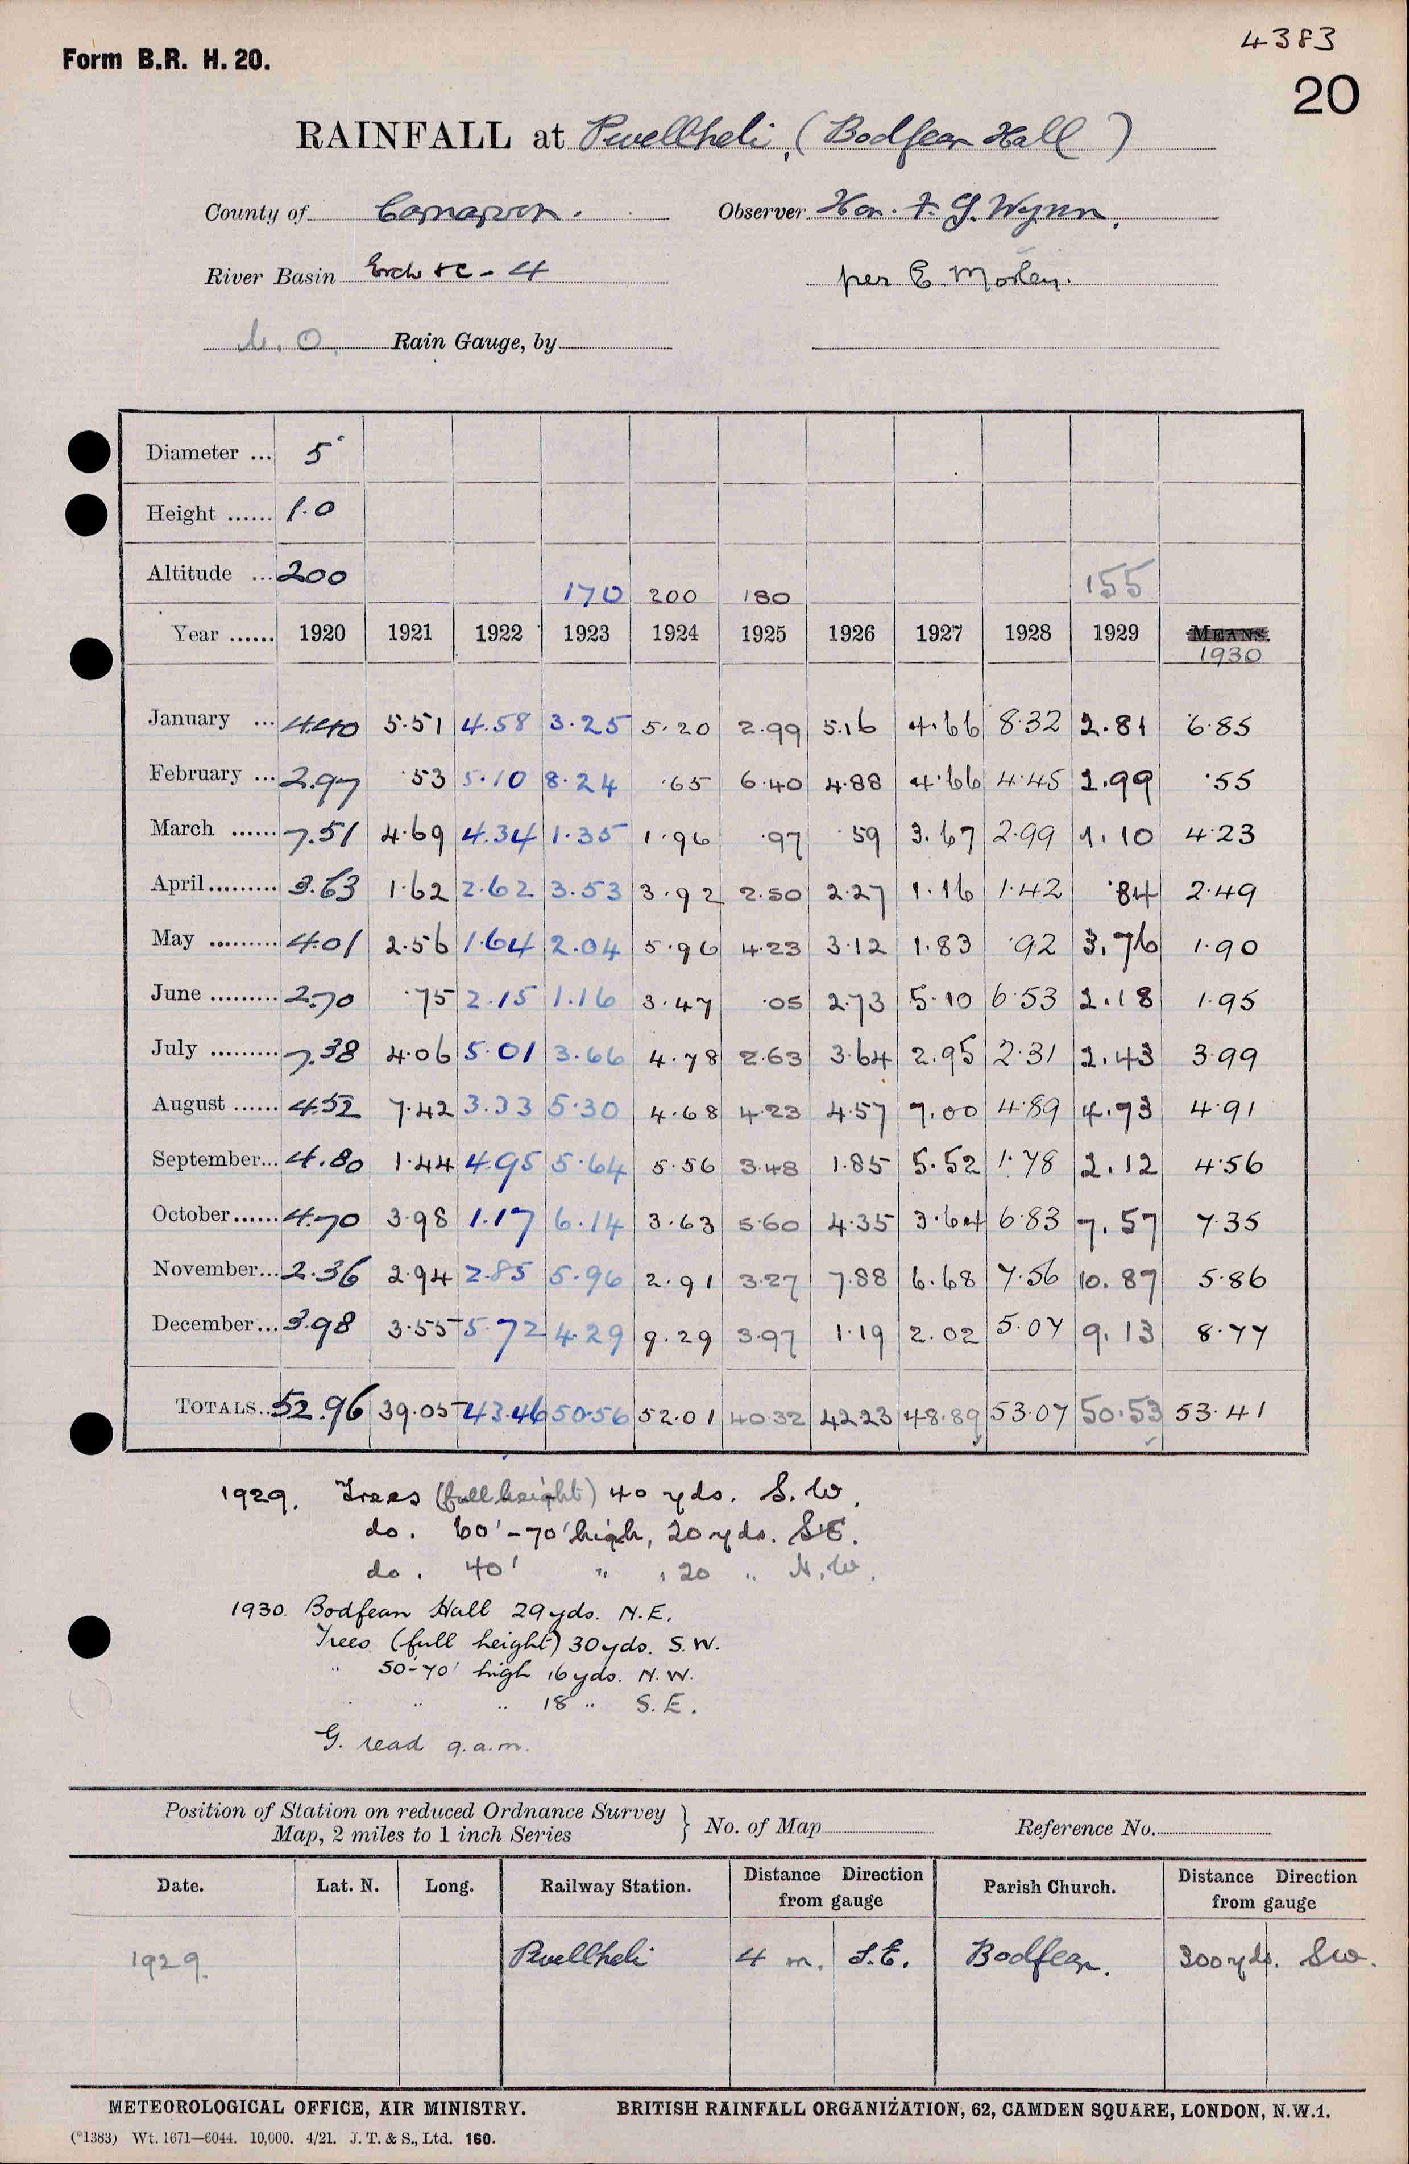 4383
Form B.R. H. 20.
20
RAINFALL at Pwellheli, (Bodfean Hall)
County of Carnarvon. Observer Hon. F. G. Wynn,
River Basin Erch &c - 4 per E. Morley.
M. O. Rain Gauge, by
Diameter ... 5"
Height ...... 1.0
Altitude ... 200 170 200 180 155
Year ...... 1920 1921 1922 1923 1924 1925 1926 1927 1928 1929 MEANS.
1930
January ... 4.40 5.51 4.58 3.25 5.20 2.99 5.16 4.66 8.32 2.81 6.85
February ... 2.97 .53 5.10 8.24 .65 6.40 4.88 4.66 4.45 2.99 .55
March ...... 7.51 4.69 4.34 1.35 1.96 .97 .59 3.67 2.99 1.10 4.23
April ......... 3.63 1.62 2.62 3.53 3.92 2.50 2.27 1.16 1.42 .84 2.49
May ......... 4.01 2.56 1.64 2.04 5.96 4.23 3.12 1.83 .92 3.76 1.90
June ......... 2.70 .75 2.15 1.16 3.47 .05 2.73 5.10 6.53 2.18 1.95
July ......... 7.38 4.06 5.01 3.66 4.78 2.63 3.64 2.95 2.31 2.43 3.99
August ...... 4.52 7.42 3.33 5.30 4.68 4.23 4.57 7.00 4.89 4.73 4.91
September... 4.80 1.44 4.95 5.64 5.56 3.48 1.85 5.52 1.78 2.12 4.56
October...... 4.70 3.98 1.17 6.14 3.63 5.60 4.35 3.64 6.83 7.57 7.35
November... 2.36 2.94 2.85 5.96 2.91 3.27 7.88 6.68 7.56 10.87 5.86
December... 3.98 3.55 5.72 4.29 9.29 3.97 1.19 2.02 5.07 9.13 8.77
TOTALS.. 52.96 39.05 43.46 50.56 52.01 40.32 42.23 48.89 53.07 50.53 53.41
1929. Trees (full height) 40 yds. S.W.
do. 60'-70' high, 20 yds. S.E.
do. 40' " , 20 " N.W.
1930. Bodfean Hall 29 yds. N.E.
Trees (full height) 30 yds. S.W.
" 50'-70' high 16 yds. N.W.
" " " 18 " S.E.
G. read 9 a.m.
Position of Station on reduced Ordnance Survey
Map, 2 miles to 1 inch Series } No. of Map Reference No.
Date. Lat. N. Long. Railway Station. Distance Direction from gauge Parish Church. Distance Direction from gauge
1929. Pwellheli 4 m. S.E. Bodfean. 300 yds. SW.
METEOROLOGICAL OFFICE, AIR MINISTRY. BRITISH RAINFALL ORGANIZATION, 62, CAMDEN SQUARE, LONDON, N.W.1.
(*1383) Wt. 1671—6044. 10,000. 4/21. J. T. & S., Ltd. 160.